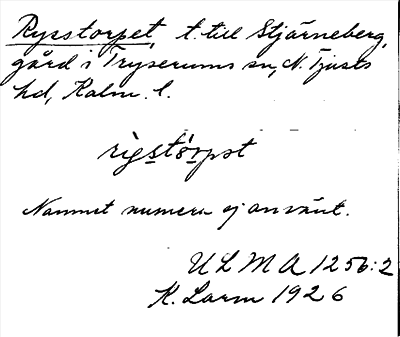 Rysstorpet, t. till Stjärneberg,
gård i Tryserums sn, N. Tjusts
hd, Kalm. l.
rystórpət
Namnet numera ej använt.
ULMA 1256:2
K. Larm 1926